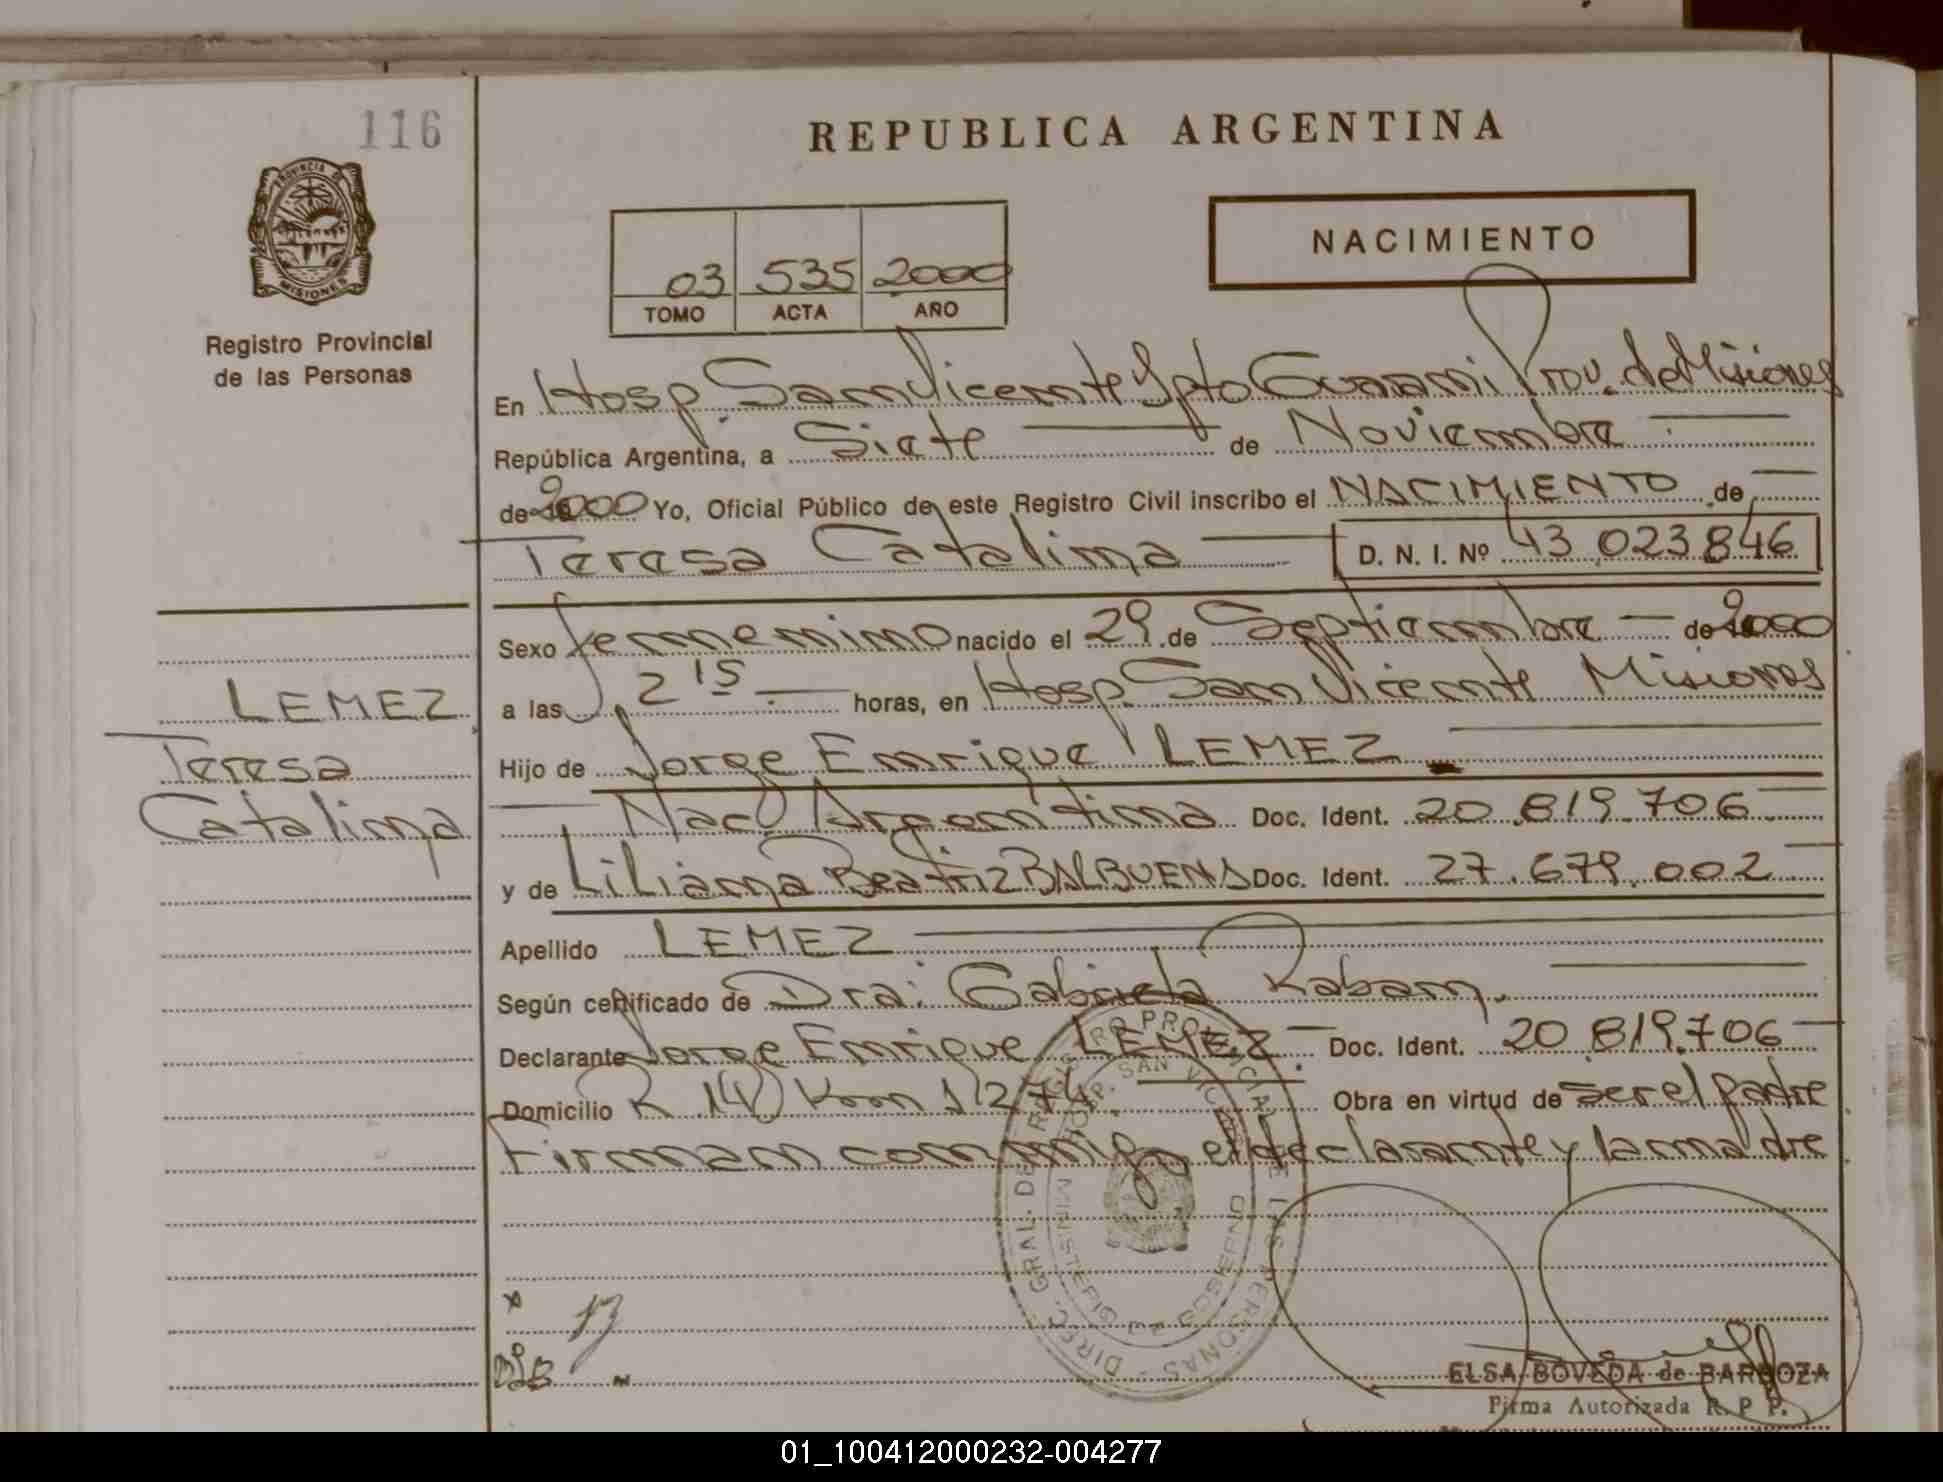 116
REPUBLICA ARGENTINA
PROVINCIA DE
MISIONES
NACIMIENTO
03 535 2000
TOMO ACTA AÑO
Registro Provincial
de las Personas
En Hosp San Vicente Dpto Guarani Prov. de Misiones
República Argentina, a Siete de Noviembre
de 2000 Yo, Oficial Público de este Registro Civil inscribo el NACIMIENTO de
Teresa Catalina D. N. I. Nº 43 023 846
Sexo femenino nacido el 29 de Septiembre de 2000
a las 2 15 horas, en Hosp. San Vicente Misiones
LEMEZ
Teresa
Catalina
Hijo de Jorge Enrique LEMEZ
Nac. Argentina Doc. Ident. 20.819.706
y de Liliana Beatriz BALBUENA Doc. Ident. 27.679.002
Apellido LEMEZ
Según certificado de Dra: Gabriela Raban
Declarante Jorge Enrique LEMEZ Doc. Ident. 20 819.706
Domicilio R 14 Km 1274 Obra en virtud de ser el padre
Firman conmigo el declarante y la madre
DIREC. GRAL. DEL REGISTRO PROVINCIAL DE LAS PERSONAS
HOSP. SAN VICENTE
MINISTERIO DE GOBIERNO
ELSA BOVEDA de BARBOZA
Firma Autorizada R. P. P.
01_100412000232-004277